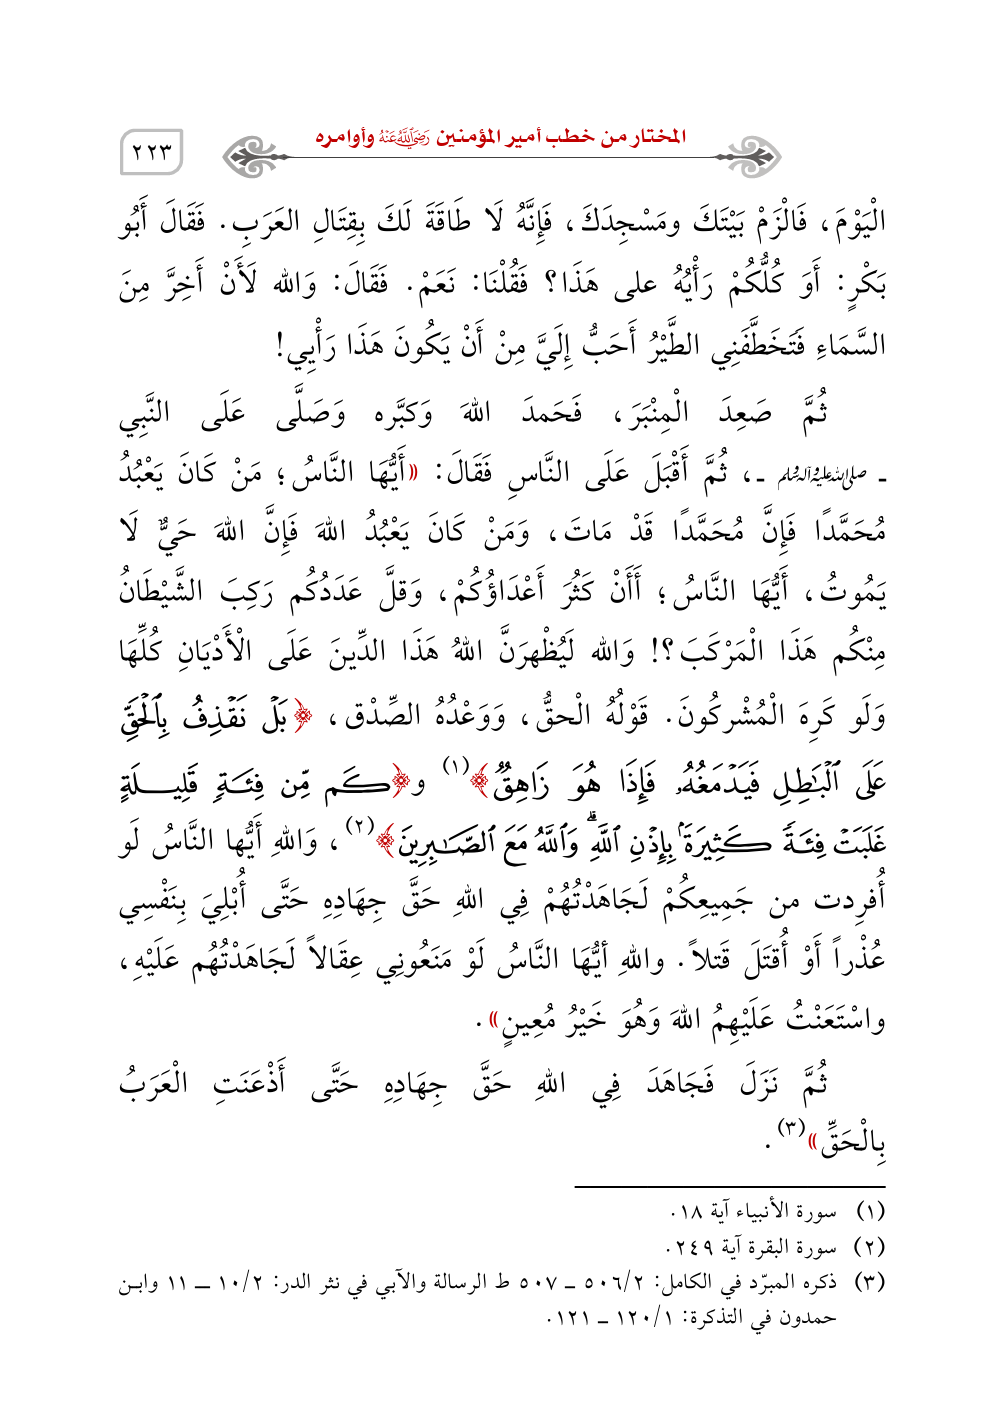 المختار من خطب أمير المؤمنين رَضِيَ اللَّهُ عَنْهُ وأوامره
٢٢٣
الْيَوْمَ، فَالْزَمْ بَيْتَكَ ومَسْجِدَكَ، فَإِنَّهُ لَا طَاقَةَ لَكَ بِقِتَالِ العَرَبِ. فَقَالَ أَبُو
بَكْرٍ: أَوَ كُلُّكُمْ رَأْيُهُ على هَذَا؟ فَقُلْنَا: نَعَمْ. فَقَالَ: وَالله لَأَنْ أَخِرَّ مِنَ
السَّمَاءِ فَتَخَطَّفَنِي الطَّيْرُ أَحَبُّ إِلَيَّ مِنْ أَنْ يَكُونَ هَذَا رَأْيِي!
ثُمَّ صَعِدَ الْمِنْبَرَ، فَحَمدَ اللهَ وَكبَّره وَصَلَّى عَلَى النَّبِي
ـ صلى الله عليه وآله وسلم ـ، ثُمَّ أَقْبَلَ عَلَى النَّاسِ فَقَالَ: «أَيُّهَا النَّاسُ؛ مَنْ كَانَ يَعْبُدُ
مُحَمَّدًا فَإِنَّ مُحَمَّدًا قَدْ مَاتَ، وَمَنْ كَانَ يَعْبُدُ اللهَ فَإِنَّ اللهَ حَيٌّ لَا
يَمُوتُ، أَيُّهَا النَّاسُ؛ أَأَنْ كَثُرَ أَعْدَاؤُكُمْ، وَقلَّ عَدَدُكُم رَكِبَ الشَّيْطَانُ
مِنْكُم هَذَا الْمَرْكَبَ؟! وَالله لَيُظْهِرَنَّ اللهُ هَذَا الدِّينَ عَلَى الْأَدْيَانِ كُلِّهَا
وَلَو كَرِهَ الْمُشْرِكُونَ. قَوْلُهُ الْحقُّ، وَوَعْدُهُ الصِّدْق، ﴿بَلْ نَقْذِفُ بِٱلْحَقِّ
عَلَى ٱلْبَٰطِلِ فَيَدْمَغُهُۥ فَإِذَا هُوَ زَاهِقٌ﴾(١) و﴿كَم مِّن فِئَةٍ قَلِيلَةٍ
غَلَبَتْ فِئَةً كَثِيرَةًۢ بِإِذْنِ ٱللَّهِ ۗ وَٱللَّهُ مَعَ ٱلصَّٰبِرِينَ﴾(٢)، وَاللهِ أَيُّها النَّاسُ لَو
أُفرِدت من جَمِيعِكُمْ لَجَاهَدْتُهُمْ فِي اللهِ حَقَّ جِهَادِهِ حَتَّى أُبْلِيَ بِنَفْسِي
عُذْراً أَوْ أُقتَلَ قَتلاً. واللهِ أيُّهَا النَّاسُ لَوْ مَنَعُونِي عِقَالاً لَجَاهَدْتُهُم عَلَيْهِ،
واسْتَعَنْتُ عَلَيْهِمُ اللهَ وَهُوَ خَيْرُ مُعِينٍ».
ثُمَّ نَزَلَ فَجَاهَدَ فِي اللهِ حَقَّ جِهَادِهِ حَتَّى أَذْعَنَتِ الْعَرَبُ
بِالْحَقِّ»(٣).
(١) سورة الأنبياء آية ١٨.
(٢) سورة البقرة آية ٢٤٩.
(٣) ذكره المبرّد في الكامل: ٥٠٦/٢ ـ ٥٠٧ ط الرسالة والآبي في نثر الدر: ١٠/٢ ـ ١١ وابن
حمدون في التذكرة: ١٢٠/١ ـ ١٢١.